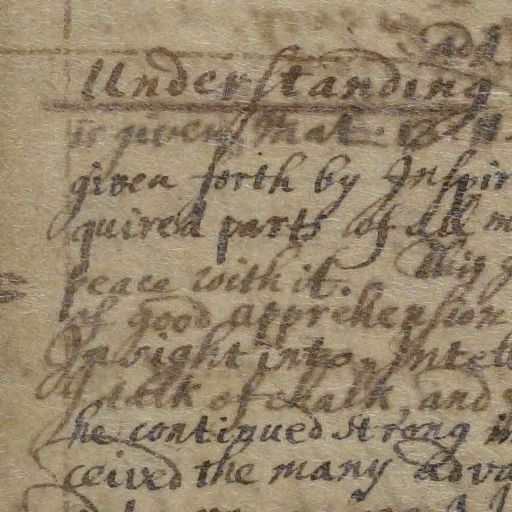 Understanding
is given that
given forth by Inspir
quired parts of all m
peace with it. This
of good apprehension
Insight into. Intell
talk of chalk, and
he continued strong in
ceived the many adva